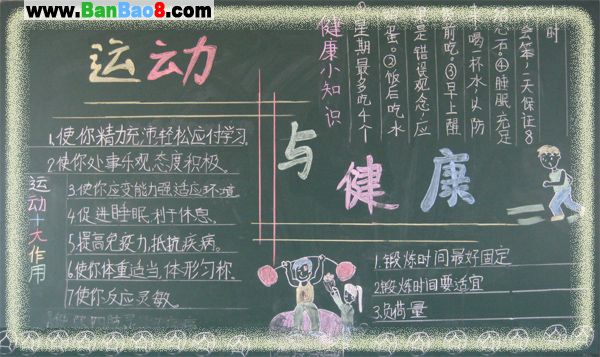 www.BanBao8.com
运动
与
健康
健康小知识
①星期最多吃4个
蛋。②饭后吃水
是错误观念,应
前吃。③早上醒
来喝杯水,以防
石。④睡眠充足
会笨,一天保证8
时
运动十大作用
1.使你精力充沛轻松应付学习。
2.使你处事乐观,态度积极。
3.使你应变能力强适应环境
4.促进睡眠,利于休息。
5.提高免疫力,抵抗疾病。
6.使你体重适当,体形匀称。
7.使你反应灵敏
1.锻炼时间最好固定
2.锻炼时间要适宜
3.负荷量